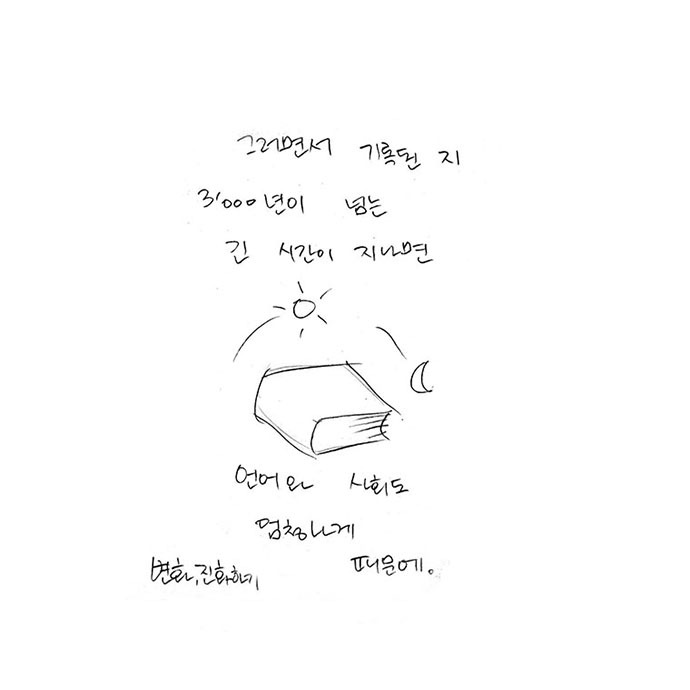 그러면서 기록된 지
3,000년이 넘는
긴 시간이 지나면
언어와 사회도
엄청나게
변화,진화하기 때문에.